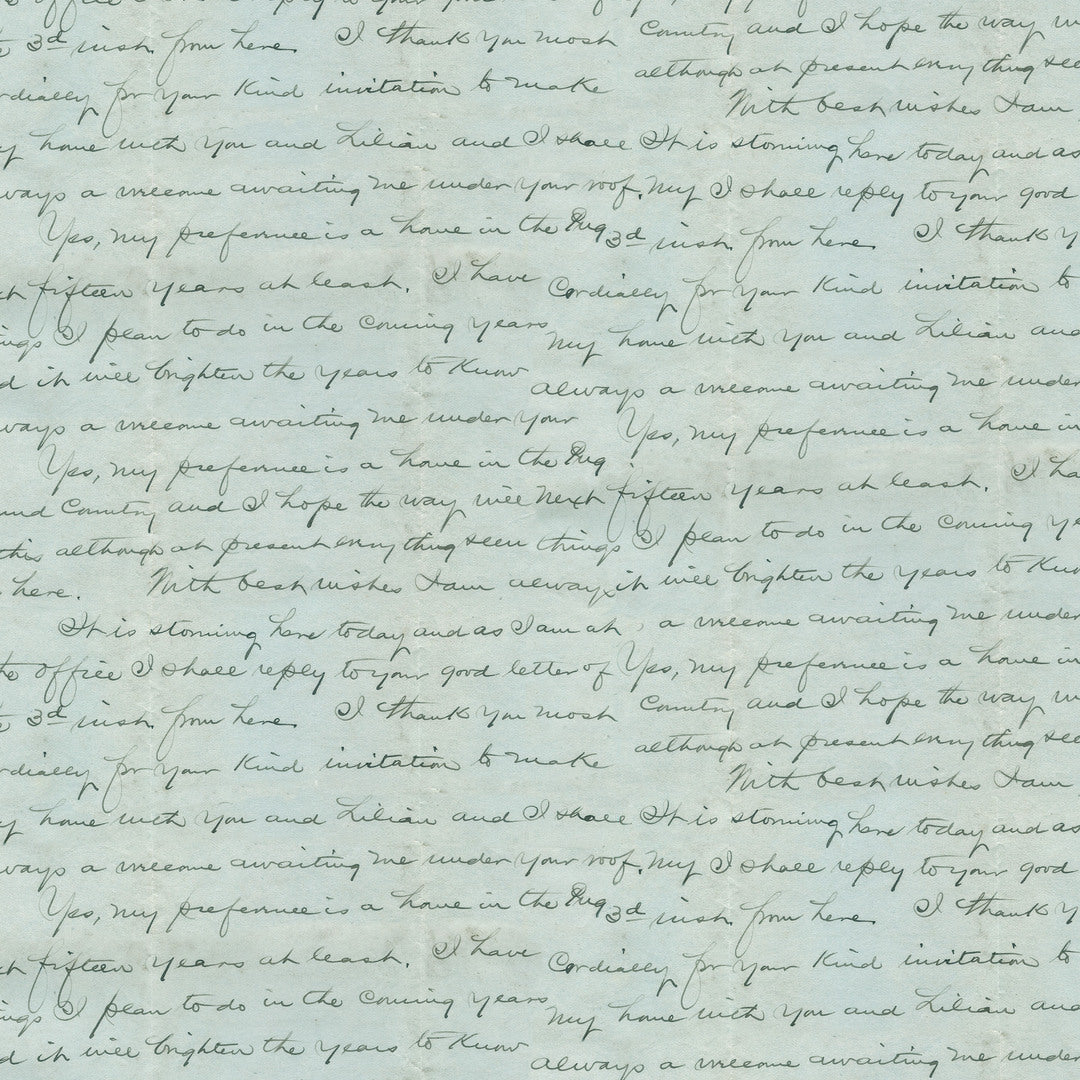 office I shall reply to your good
3d inst. from here. I thank you most Country and I hope the way w
rdially for your kind invitation to make although at present everything see
With best wishes I am
y home with you and Lilian and I shall It is storming here today and as
ways a welcome awaiting me under your roof. My I shall reply to your good
Yes, my preference is a home in the Pug 3d inst. from here. I thank y
t fifteen years at least. I have Cordially for your kind invitation to
ings I plan to do in the coming years my home with you and Lilian and
d it will brighten the years to know always a welcome awaiting me under
ways a welcome awaiting me under your Yes, my preference is a home in
Yes, my preference is a home in the Pug I ha
und Country and I hope the way will next fifteen years at least.
this although at present everything seem things I plan to do in the coming ye
here. With best wishes I am always it will brighten the years to know
It is storming here today and as I am at , a welcome awaiting me under
the office I shall reply to your good letter of Yes, my preference is a home in
3d inst. from here. I thank you most Country and I hope the way w
rdially for your kind invitation to make although at present everything see
With best wishes I am
y home with you and Lilian and I shall It is storming here today and as
ways a welcome awaiting me under your roof. My I shall reply to your good
Yes, my preference is a home in the Pug 3d inst. from here. I thank y
t fifteen years at least. I have Cordially for your kind invitation to
ings I plan to do in the coming years my home with you and Lilian and
d it will brighten the years to know always a welcome awaiting me under